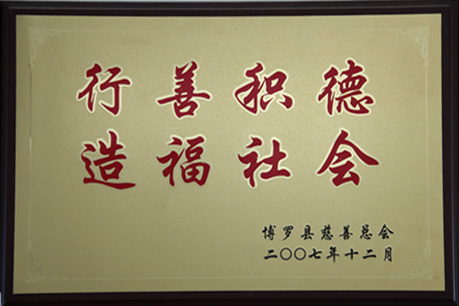 行善积德
造福社会
博罗县慈善总会
二〇〇七年十二月